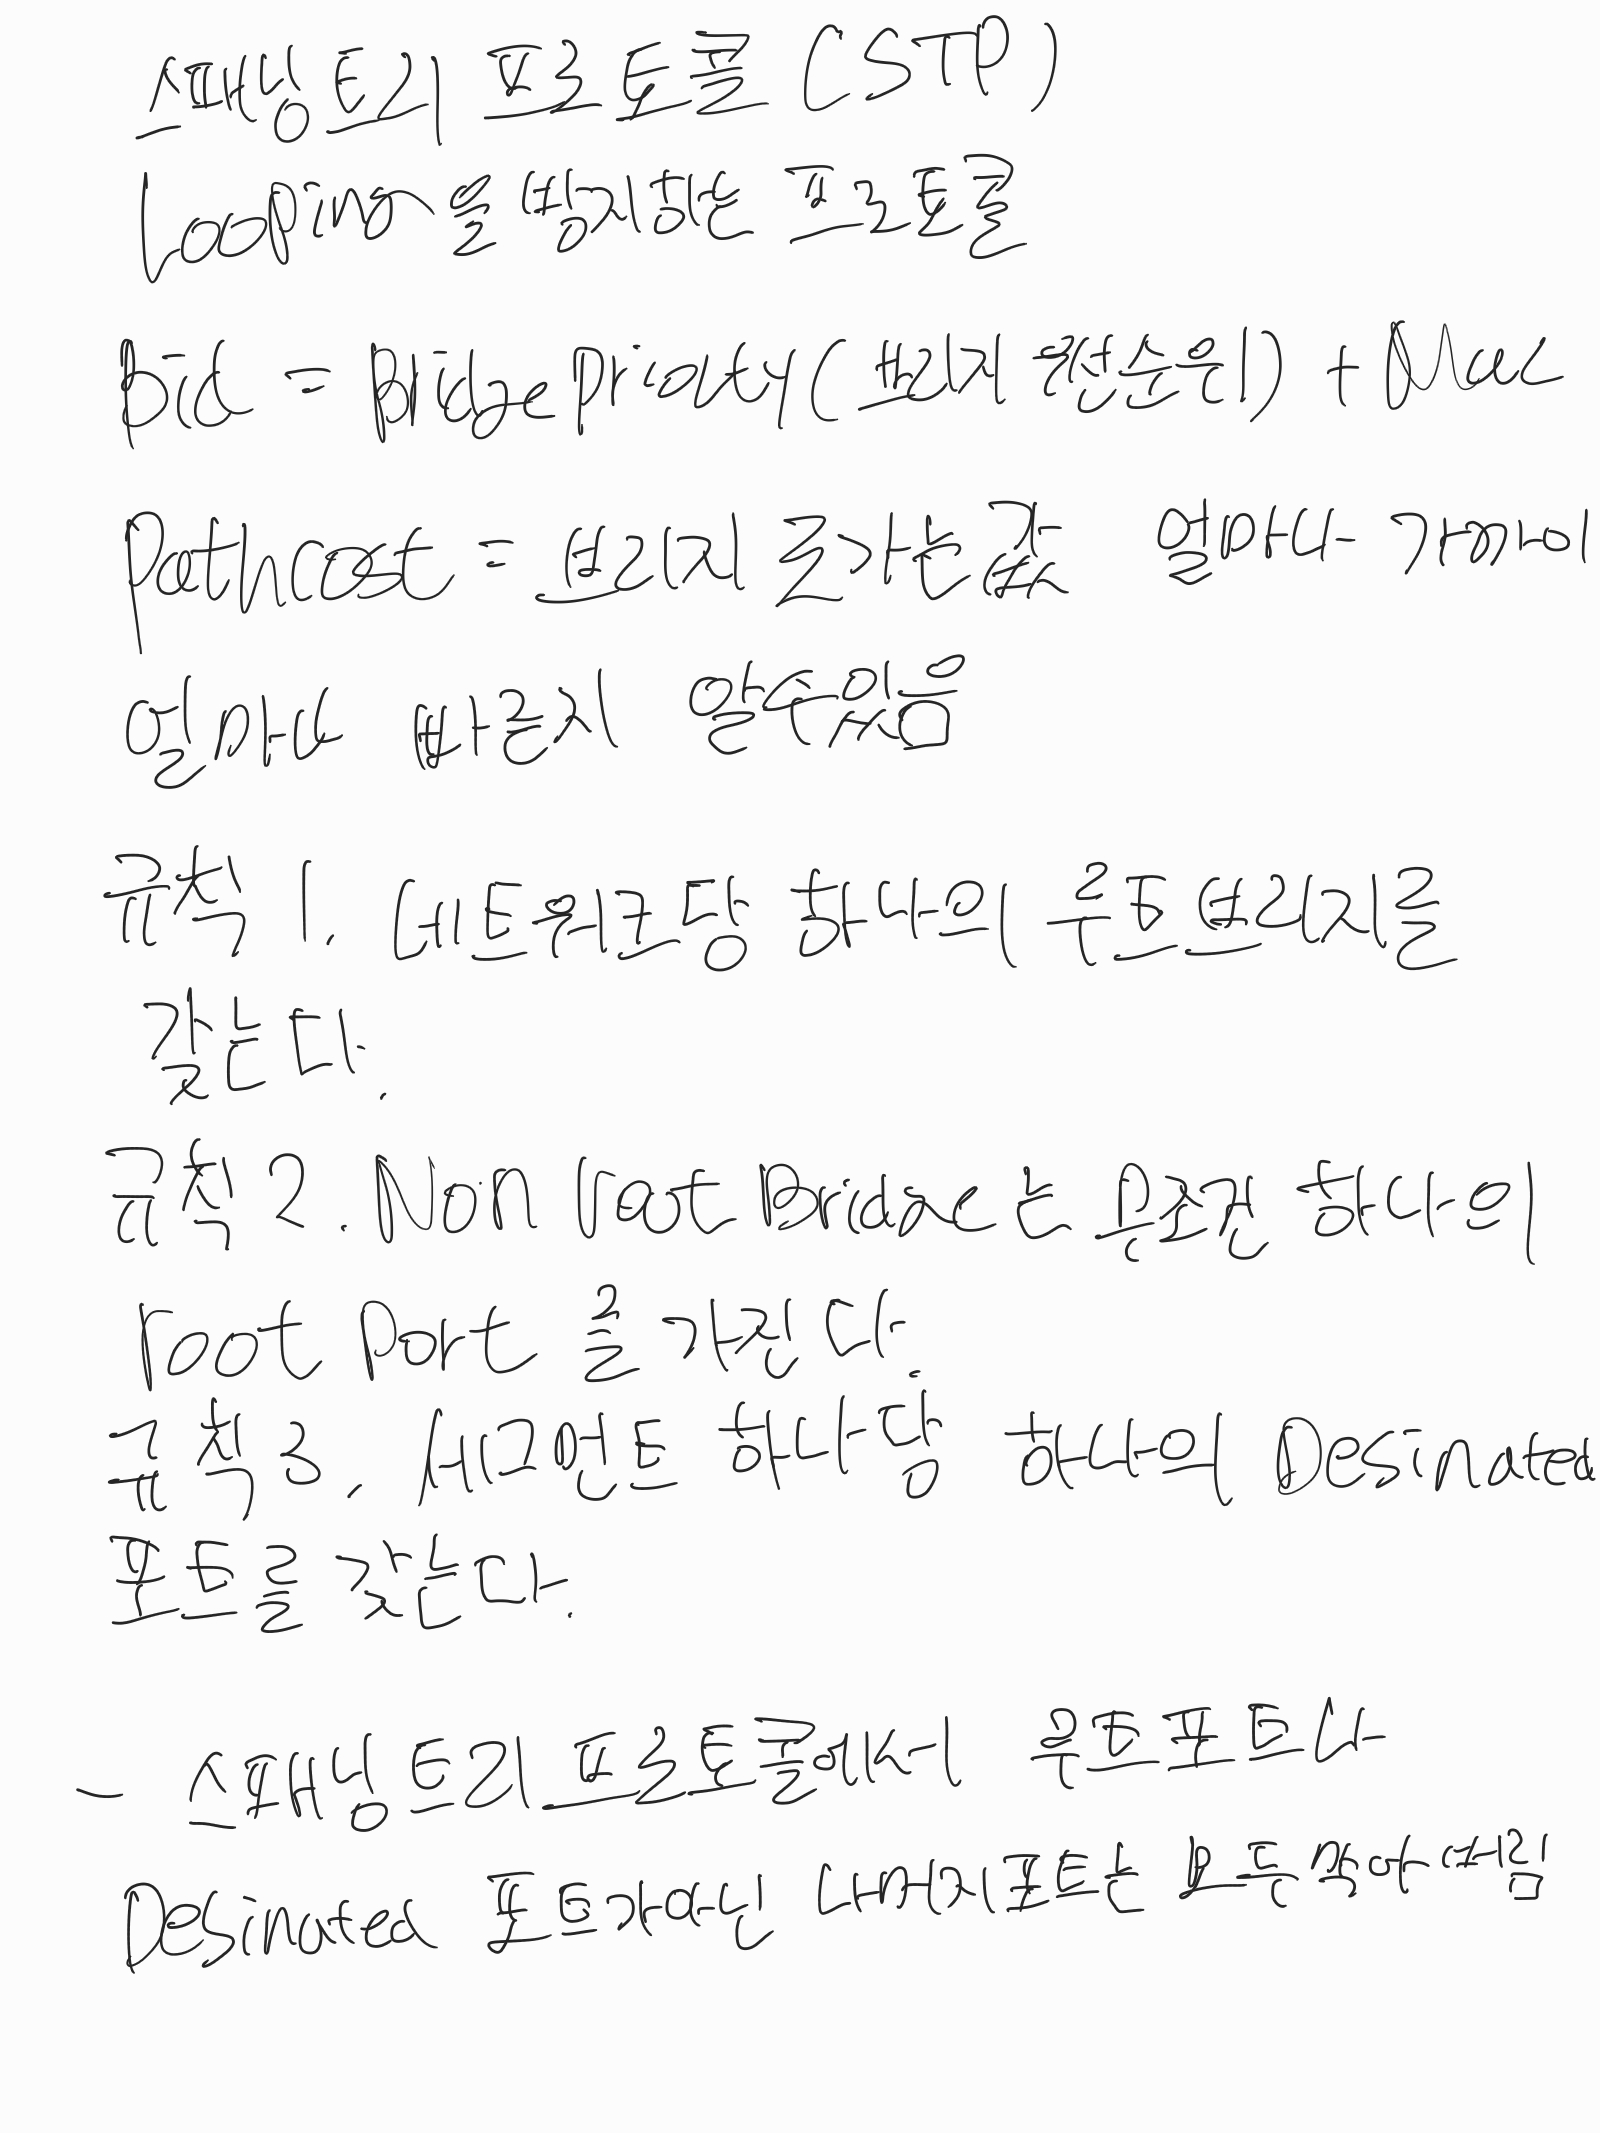 스패닝 트리 프로토콜 (STP)
Looping을 방지하는 프로토콜
Bid = Bridge priority(브리지 우선순위) + Mac
Pathcost = 브리지로가는값 얼마나 가까이
얼마나 빠른지 알수있음
규칙 1. 네트워크당 하나의 루트브리지를
갖는다.
규칙 2. Non root Bridge는 무조건 하나의
root port를 가진다.
규칙 3. 세그먼트 하나당 하나의 Desinated
포트를 갖는다.
- 스패닝 트리 프로토콜에서 루트포트나
Desinated 포트가아닌 나머지포트는 모두 막아버림